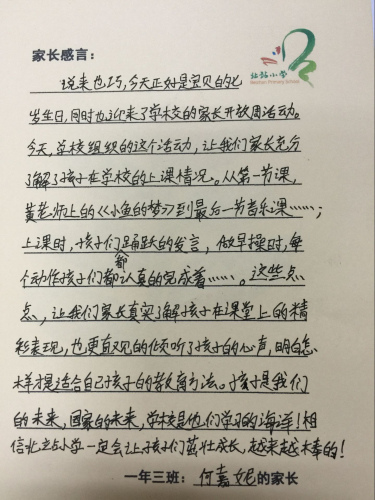 家长感言：
北站小学
说来也巧，今天正好是宝贝的七
岁生日，同时也迎来了学校的家长开放周活动。
今天，学校组织的这个活动，让我们家长充分
了解了孩子在学校的上课情况。从第一节课，
黄老师上的《小鱼的梦》到最后一节音乐课……；
上课时，孩子们踊跃的发言，做早操时，每
个动作孩子们都认真的完成着……。这些点
点，让我们家长真实了解孩子在课堂上的精
彩表现，也更直观的倾听了孩子的心声，明白怎
样才是适合自己孩子的教育方法。孩子是我们
的未来，国家的未来，学校是他们学习的海洋！相
信北站小学一定会让孩子们茁壮成长，越来越棒的！
一年三班：何嘉妮的家长